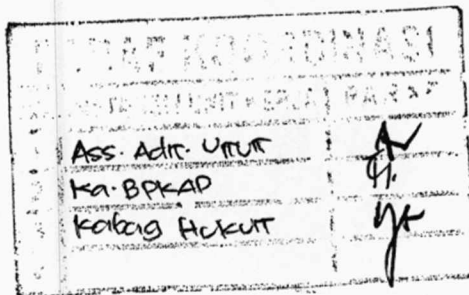 PARAF KOORDINASI
UNIT KERJA PARAF
Ass. Adm. Umum
Ka. BPKAD
Kabag Hukum